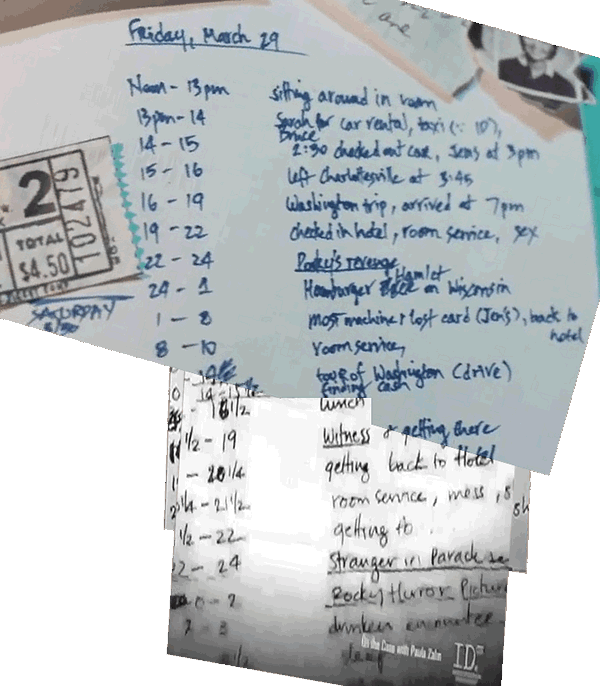 are
Friday, March 29
Noon - 13pm sitting around in room
13pm - 14 Sarah for car rental, taxi (∵ 10),
Bruce
14 - 15 2:30 checked out car, Jens at 3pm
15 - 16 left Charlottesville at 3:45
16 - 19 Washington trip, arrived at 7pm
19 - 22 checked in hotel, room service, sex
22 - 24 Porky's revenge
24 - 1 Hamburger Hamlet on Wisconsin
SATURDAY
1 - 8 most machine & lost card (Jen's), back to hotel
8 - 10 room service,
tour of Washington (drive)
finding cash
lunch
1/2 - 19 Witness & getting there
- 20 1/4 getting back to Hotel
1/4 - 21 1/2 room service, mess, s
1/2 - 22 getting to
22 - 24 Stranger in Parad
0 - 2 Rocky Horror Pictur
2 - 3 drunken encounter
1/2
2
102479
TOTAL
$4.50
On the Case with Paula Zahn
ID